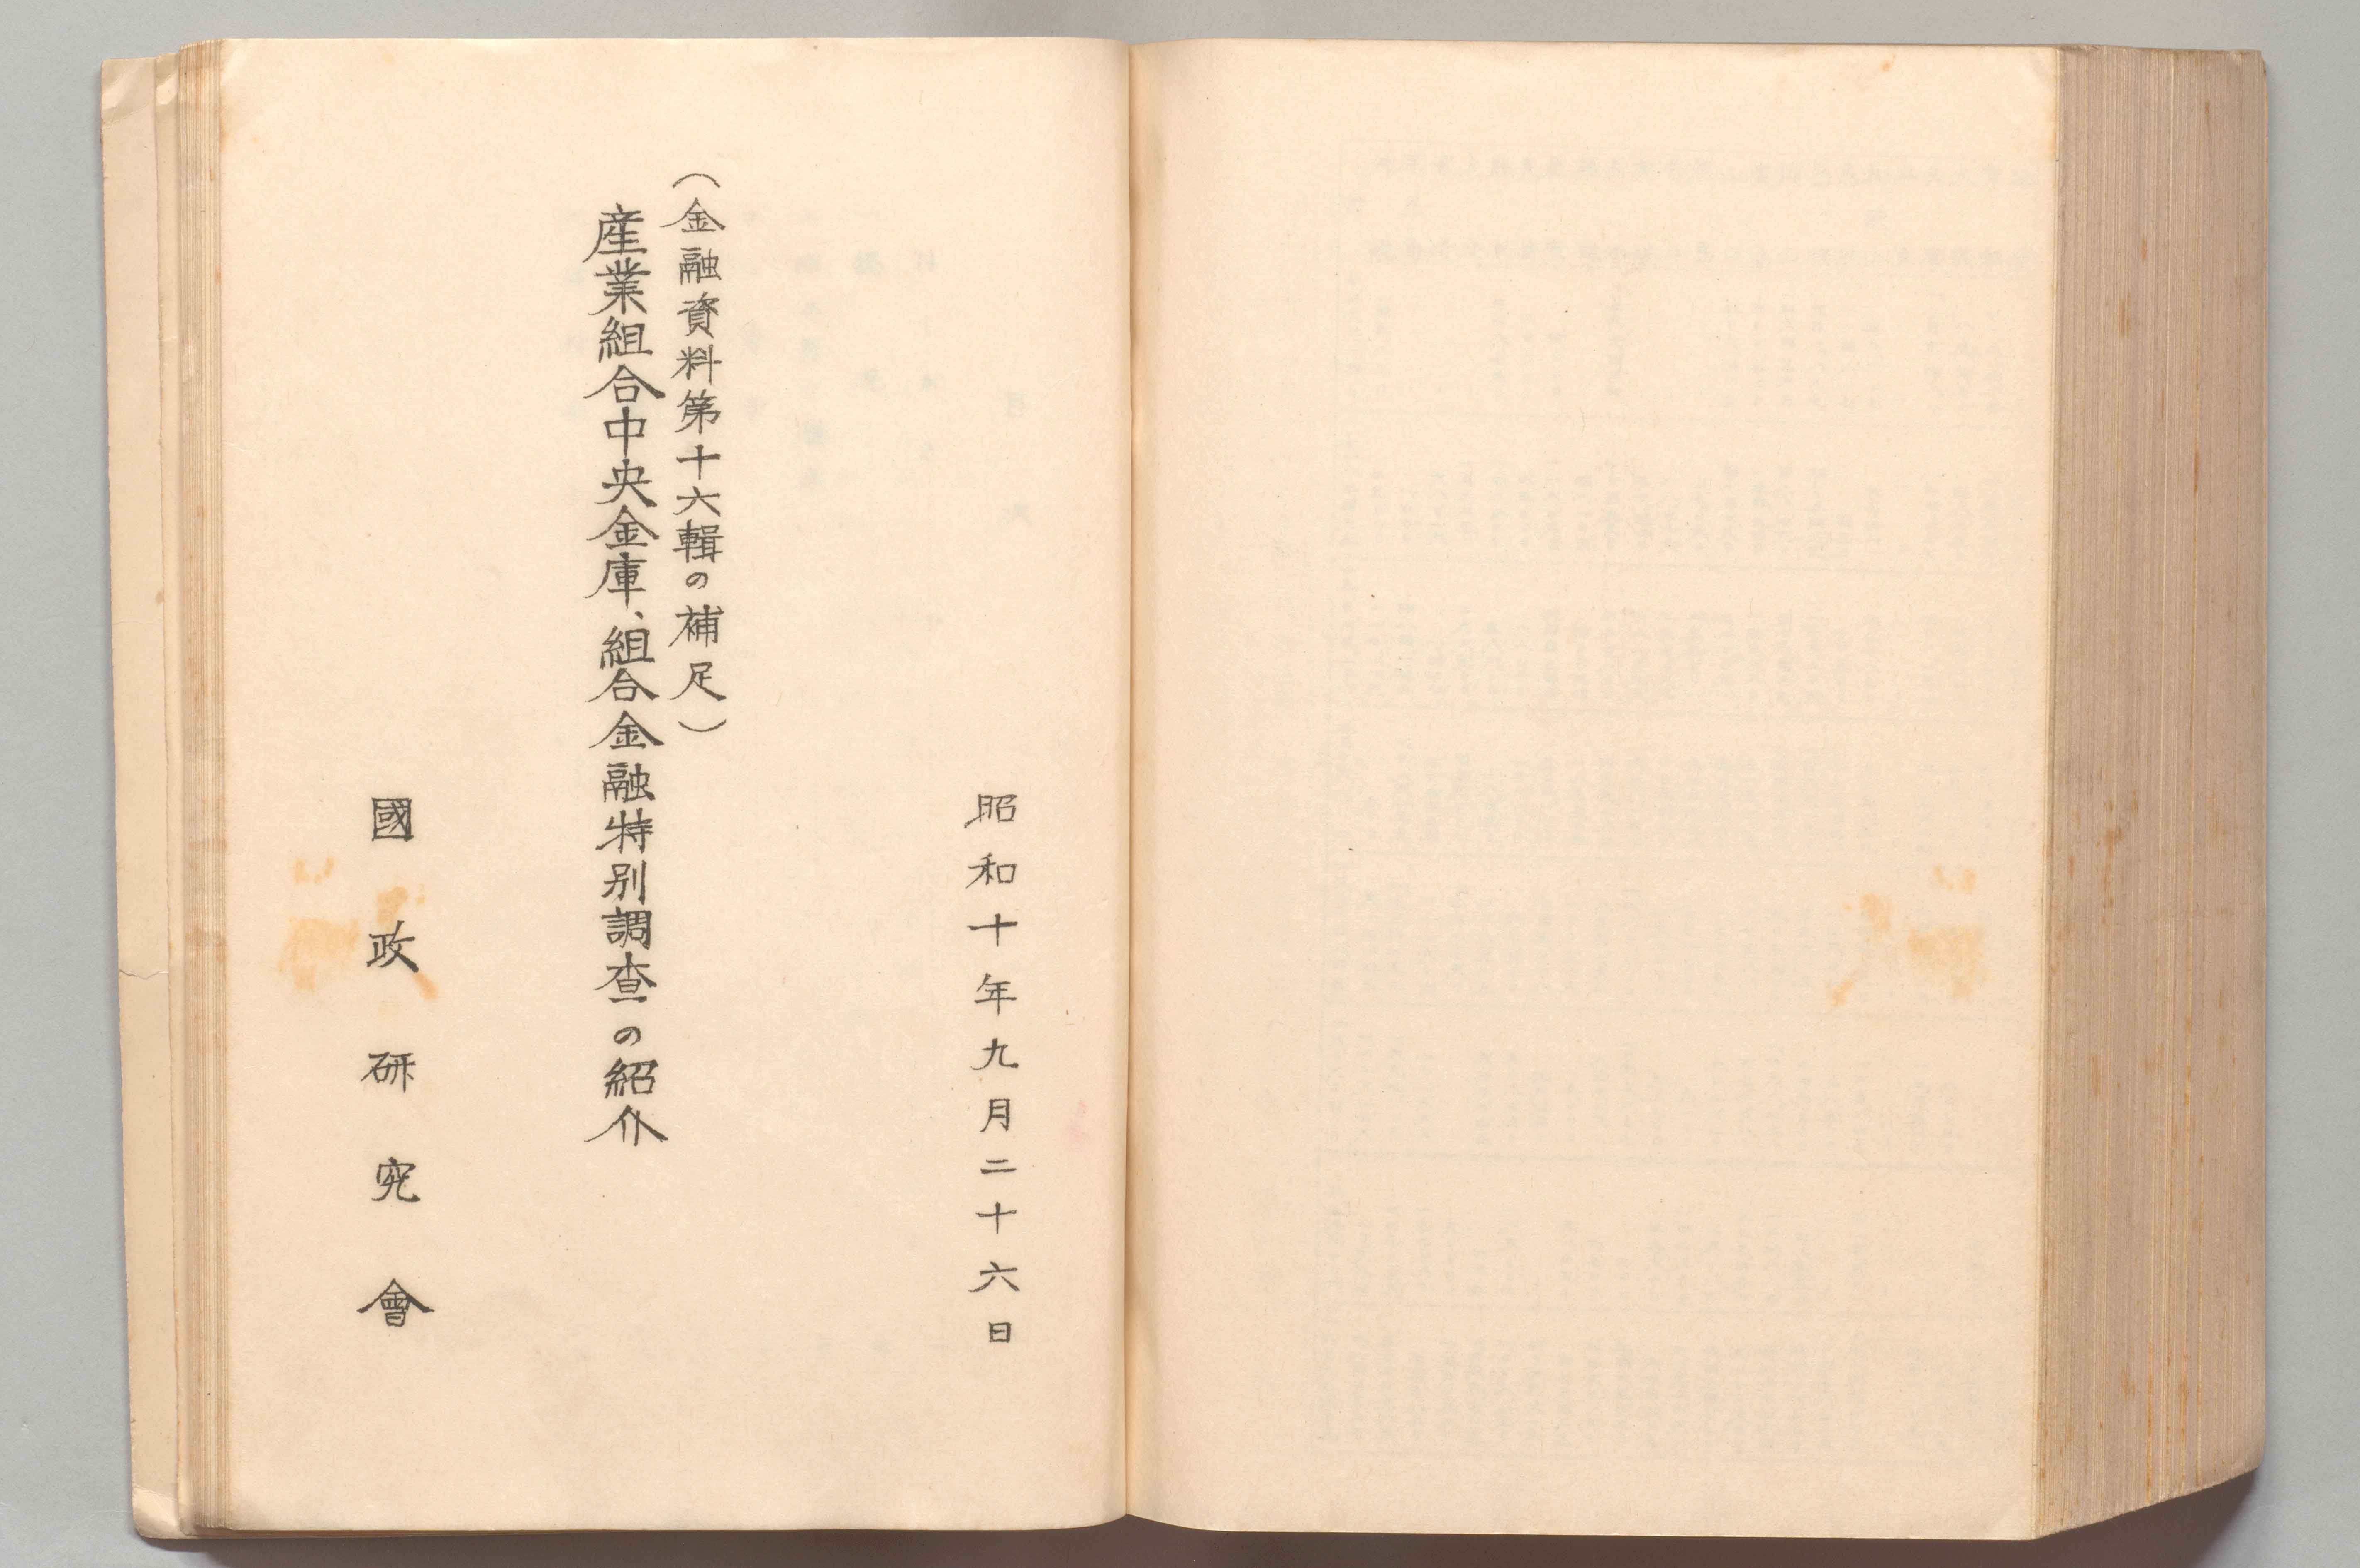 昭和十年九月二十六日
（金融資料第十六輯の補足）
産業組合中央金庫、組合金融特別調査の紹介
國政研究會